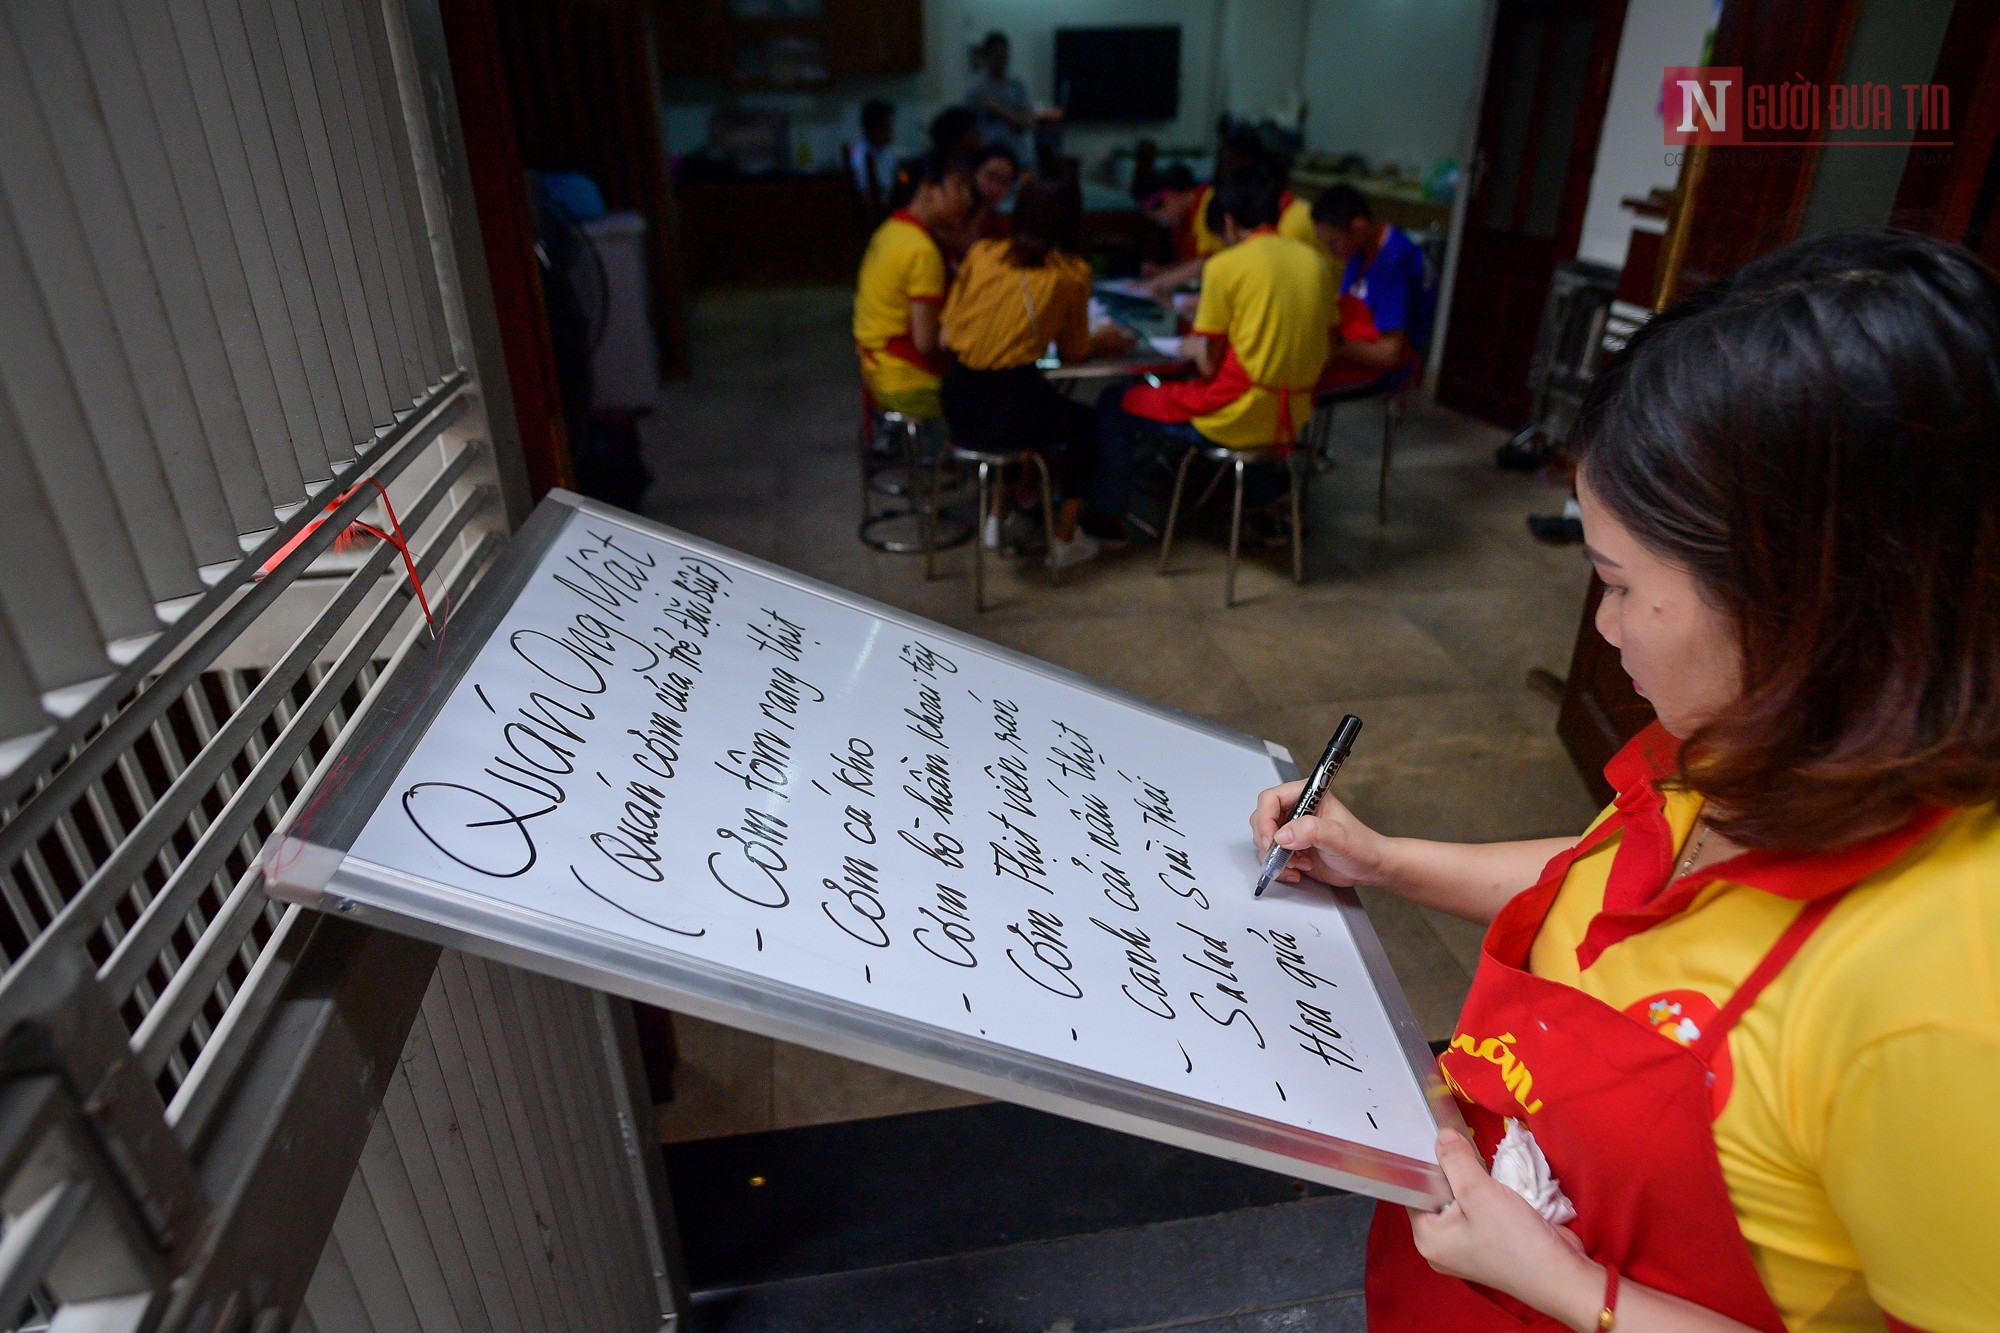 NGƯỜI ĐƯA TIN
Quán Ong Mật
(Quán cơm của trẻ đặc biệt)
- Cơm tôm rang thịt
- Cơm cá kho
- Cơm bò hầm khoai tây
- Cơm thịt viên rán
- Canh cải nấu thịt
- Salad Sini Thái
- Hoa quả
-
Quán